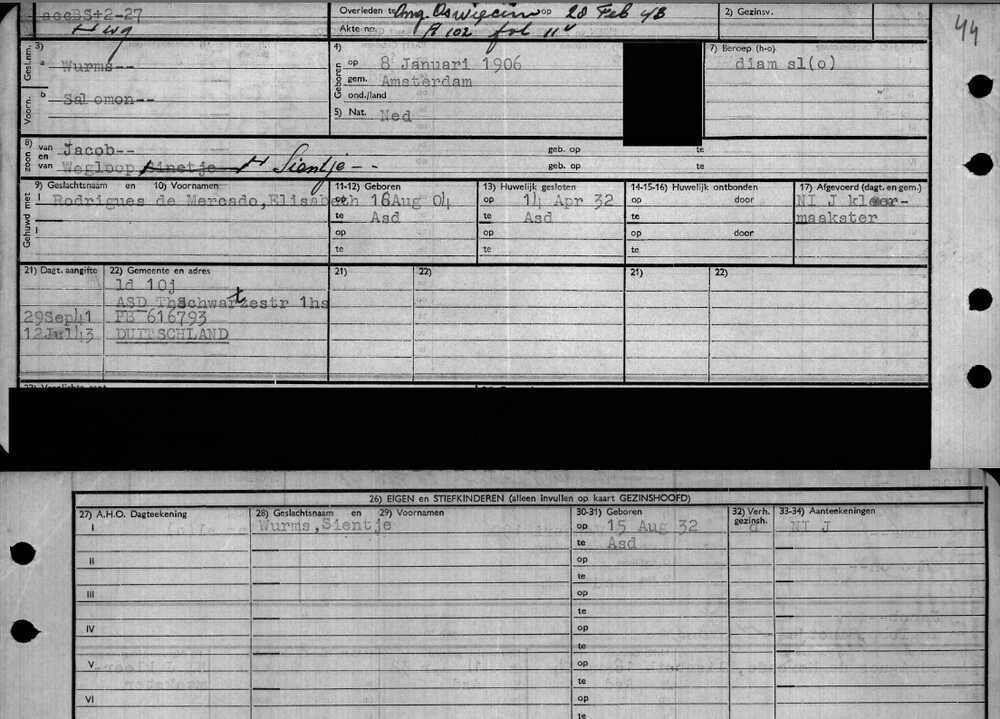 accBS+2-27
Overleden te Omg. Oswiecim op 28 Feb 43
2) Gezinsv.
44
Akte no. A 102 fol 11v
Gesl.n.
3)
a Wurms--
4)
Geboren
op 8 Januari 1906
gem. Amsterdam
ond./land
5) Nat. Ned
7) Beroep (h-o)
diam sl(o)
Voorn.
b Salomon--
8) zoon van en van
Jacob--
geb. op te
Wegloop Sientje--
geb. op te
Gehuwd met
9) Geslachtsnaam en 10) Voornamen
11-12) Geboren
13) Huwelijk gesloten
14-15-16) Huwelijk ontbonden
17) Afgevoerd (dagt. en gem.)
I Rodrigues de Mercado,Elisabeth
op 16Aug 04
op 14 Apr 32
op door
NI J kleer-
te Asd
te Asd
te
maakster
op
op
op door
te
te
te
21) Dagt. aangifte
22) Gemeente en adres
21)
22)
21)
22)
ld 10j
ASD ThSchwartzestr 1hs
29Sep41 PB 616793
12Jul43 DUITSCHLAND
26) EIGEN en STIEFKINDEREN (alleen invullen op kaart GEZINSHOOFD)
27) A.H.O. Dagteekening
28) Geslachtsnaam en 29) Voornamen
30-31) Geboren
32) Verh. gezinsh.
33-34) Aanteekeningen
I Wurms,Sientje
op 15 Aug 32
d
NI J
te Asd
II
op
te
III
op
te
IV
op
te
V
op
te
VI
op
te